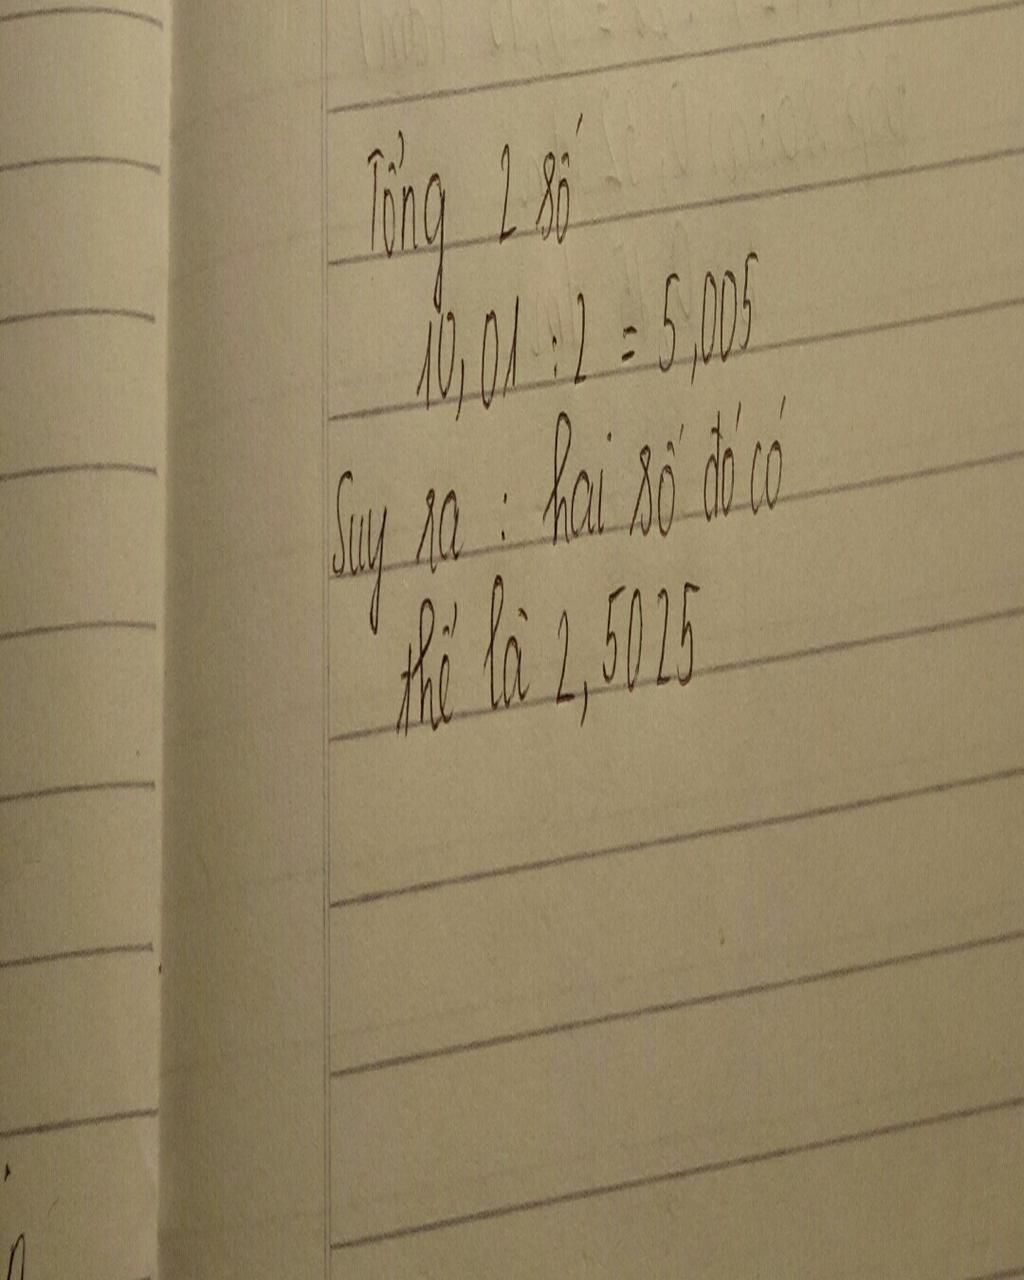 Tổng 2 số
10,01 : 2 = 5,005
Suy ra : hai số đó có
thể là 2,5025